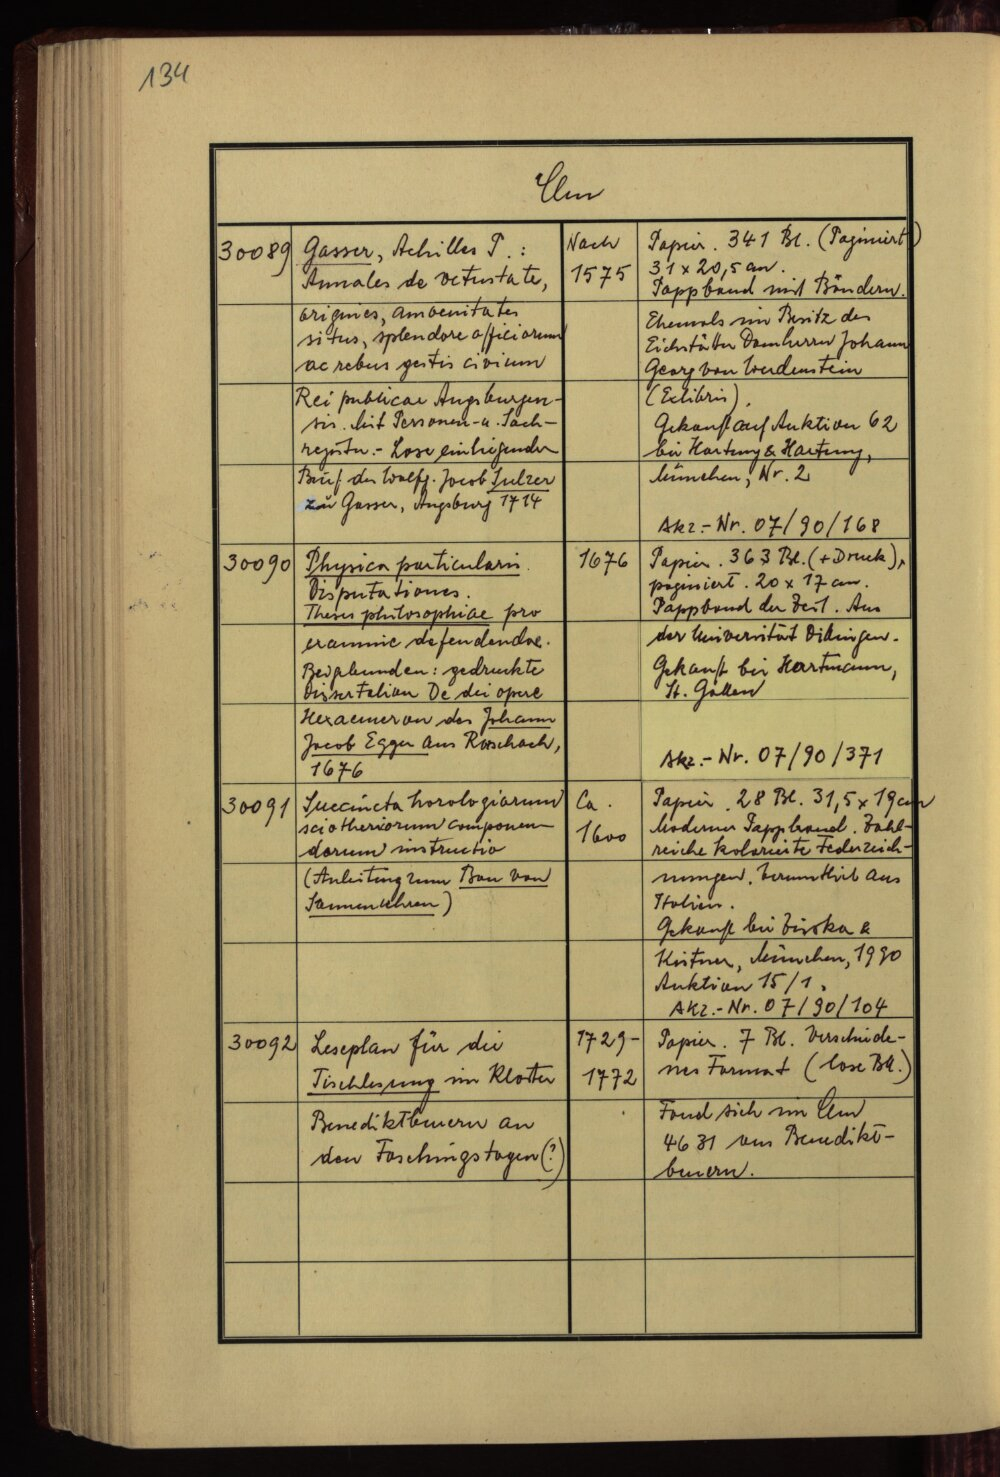 134
Clm
30089
Gasser, Achilles P.:
Annales de vetustate,
origines, amoenitates
situs, splendore officiorum
ac rebus gestis civium
Rei publicae Augsburgen-
sis. Mit Personen- u. Sach-
register.- Lose einliegender
Brief des Wolfg. Jacob Sulzer
zu Gasser, Augsburg 1714
Nach
1575
Papier. 341 Bl. (Paginiert)
31 x 20,5 cm.
Pappband mit Bändern.
Ehemals im Besitz des
Eichstätter Domherrn Johann
Georg von Werdenstein
(Exlibris).
Gekauft auf Auktion 62
bei Hartung & Hartung,
München, Nr. 2
Akz.-Nr. 07/90/168
30090
Physica particularis.
Disputationes.
Theses philosophiae pro
examine defendendae.
Beigebunden: gedruckte
Dissertation De dei opere
Hexaemeron des Johann
Jacob Egger aus Rorschach,
1676
1676
Papier. 363 Bl. (+Druck),
paginiert. 20 x 17 cm.
Pappband der Zeit. Aus
der Universität Dillingen.
Gekauft bei Hartmann,
St. Gallen
Akz.-Nr. 07/90/371
30091
Succincta horologiorum
sciothericorum componen-
dorum instructio
(Anleitung zum Bau von
Sonnenuhren)
Ca.
1600
Papier. 28 Bl. 31,5 x 19 cm
Moderner Pappband. Zahl-
reiche kolorierte Federzeich-
nungen. Vermutlich aus
Italien.
Gekauft bei Zisska &
Kistner, München, 1990
Auktion 15/1.
Akz.-Nr. 07/90/104
30092
Leseplan für die
Tischlesung im Kloster
Benediktbeuern an
den Faschingstagen (?)
1729-
1772
Papier. 7 Bl. Verschiede-
nes Format (lose Bll.)
Fand sich im Clm
4631 aus Benedikt-
beuern.